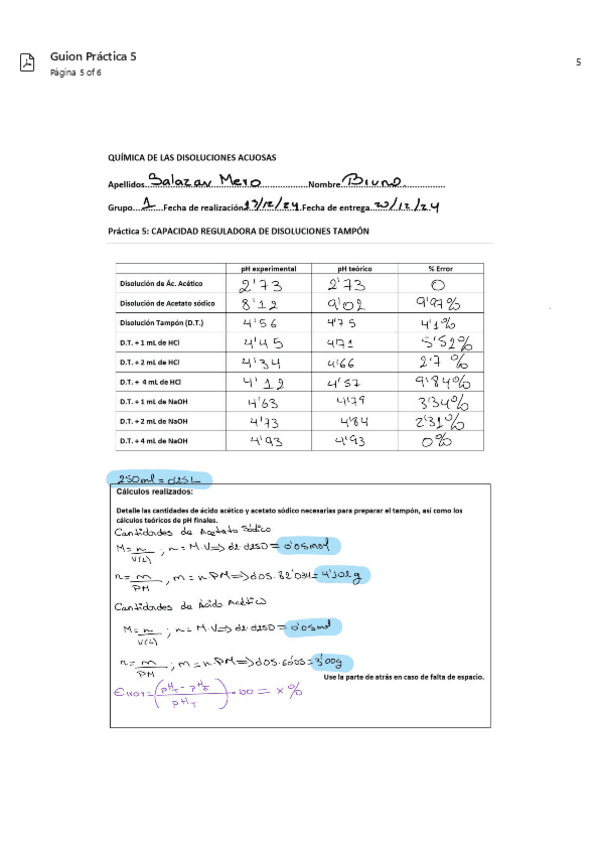 Guion Práctica 5
Página 5 of 6
5
QUÍMICA DE LAS DISOLUCIONES ACUOSAS
Apellidos Salazar Mero Nombre Bruno
Grupo 1 Fecha de realización 13/12/24 Fecha de entrega 20/12/24
Práctica 5: CAPACIDAD REGULADORA DE DISOLUCIONES TAMPÓN
pH experimental pH teórico % Error
Disolución de Ác. Acético 2'73 2'73 0
Disolución de Acetato sódico 8'12 9'02 9'97%
Disolución Tampón (D.T.) 4'56 4'75 4'1%
D.T. + 1 mL de HCl 4'45 4'71 5'52%
D.T. + 2 mL de HCl 4'34 4'66 2'7 %
D.T. + 4 mL de HCl 4'12 4'57 9'84%
D.T. + 1 mL de NaOH 4'63 4'79 3'34%
D.T. + 2 mL de NaOH 4'73 4'84 2'31%
D.T. + 4 mL de NaOH 4'93 4'93 0%
250ml = 0'25L
Cálculos realizados:
Detalle las cantidades de ácido acético y acetato sódico necesarias para preparar el tampón, así como los
cálculos teóricos de pH finales.
Cantidades de Acetato Sódico
M = n/V(L) ; n = M·V => 0'2·0'250 = 0'05mol
n = m/PM , m = n·PM => 0'05·82'034 = 4'102g
Cantidades de Ácido Acético
M = n/V(L) ; n = M·V => 0'2·0'250 = 0'05mol
n = m/PM ; m = n·PM => 0'05·60'05 = 3'00g
Use la parte de atrás en caso de falta de espacio.
Error = (pH_T - pH_E / pH_T) · 100 = x %